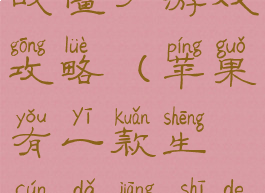 gōng lüè píng guǒ
攻略(苹果
yǒu yī kuǎn shēng
有一款生
cún dǎ jiāng shī de